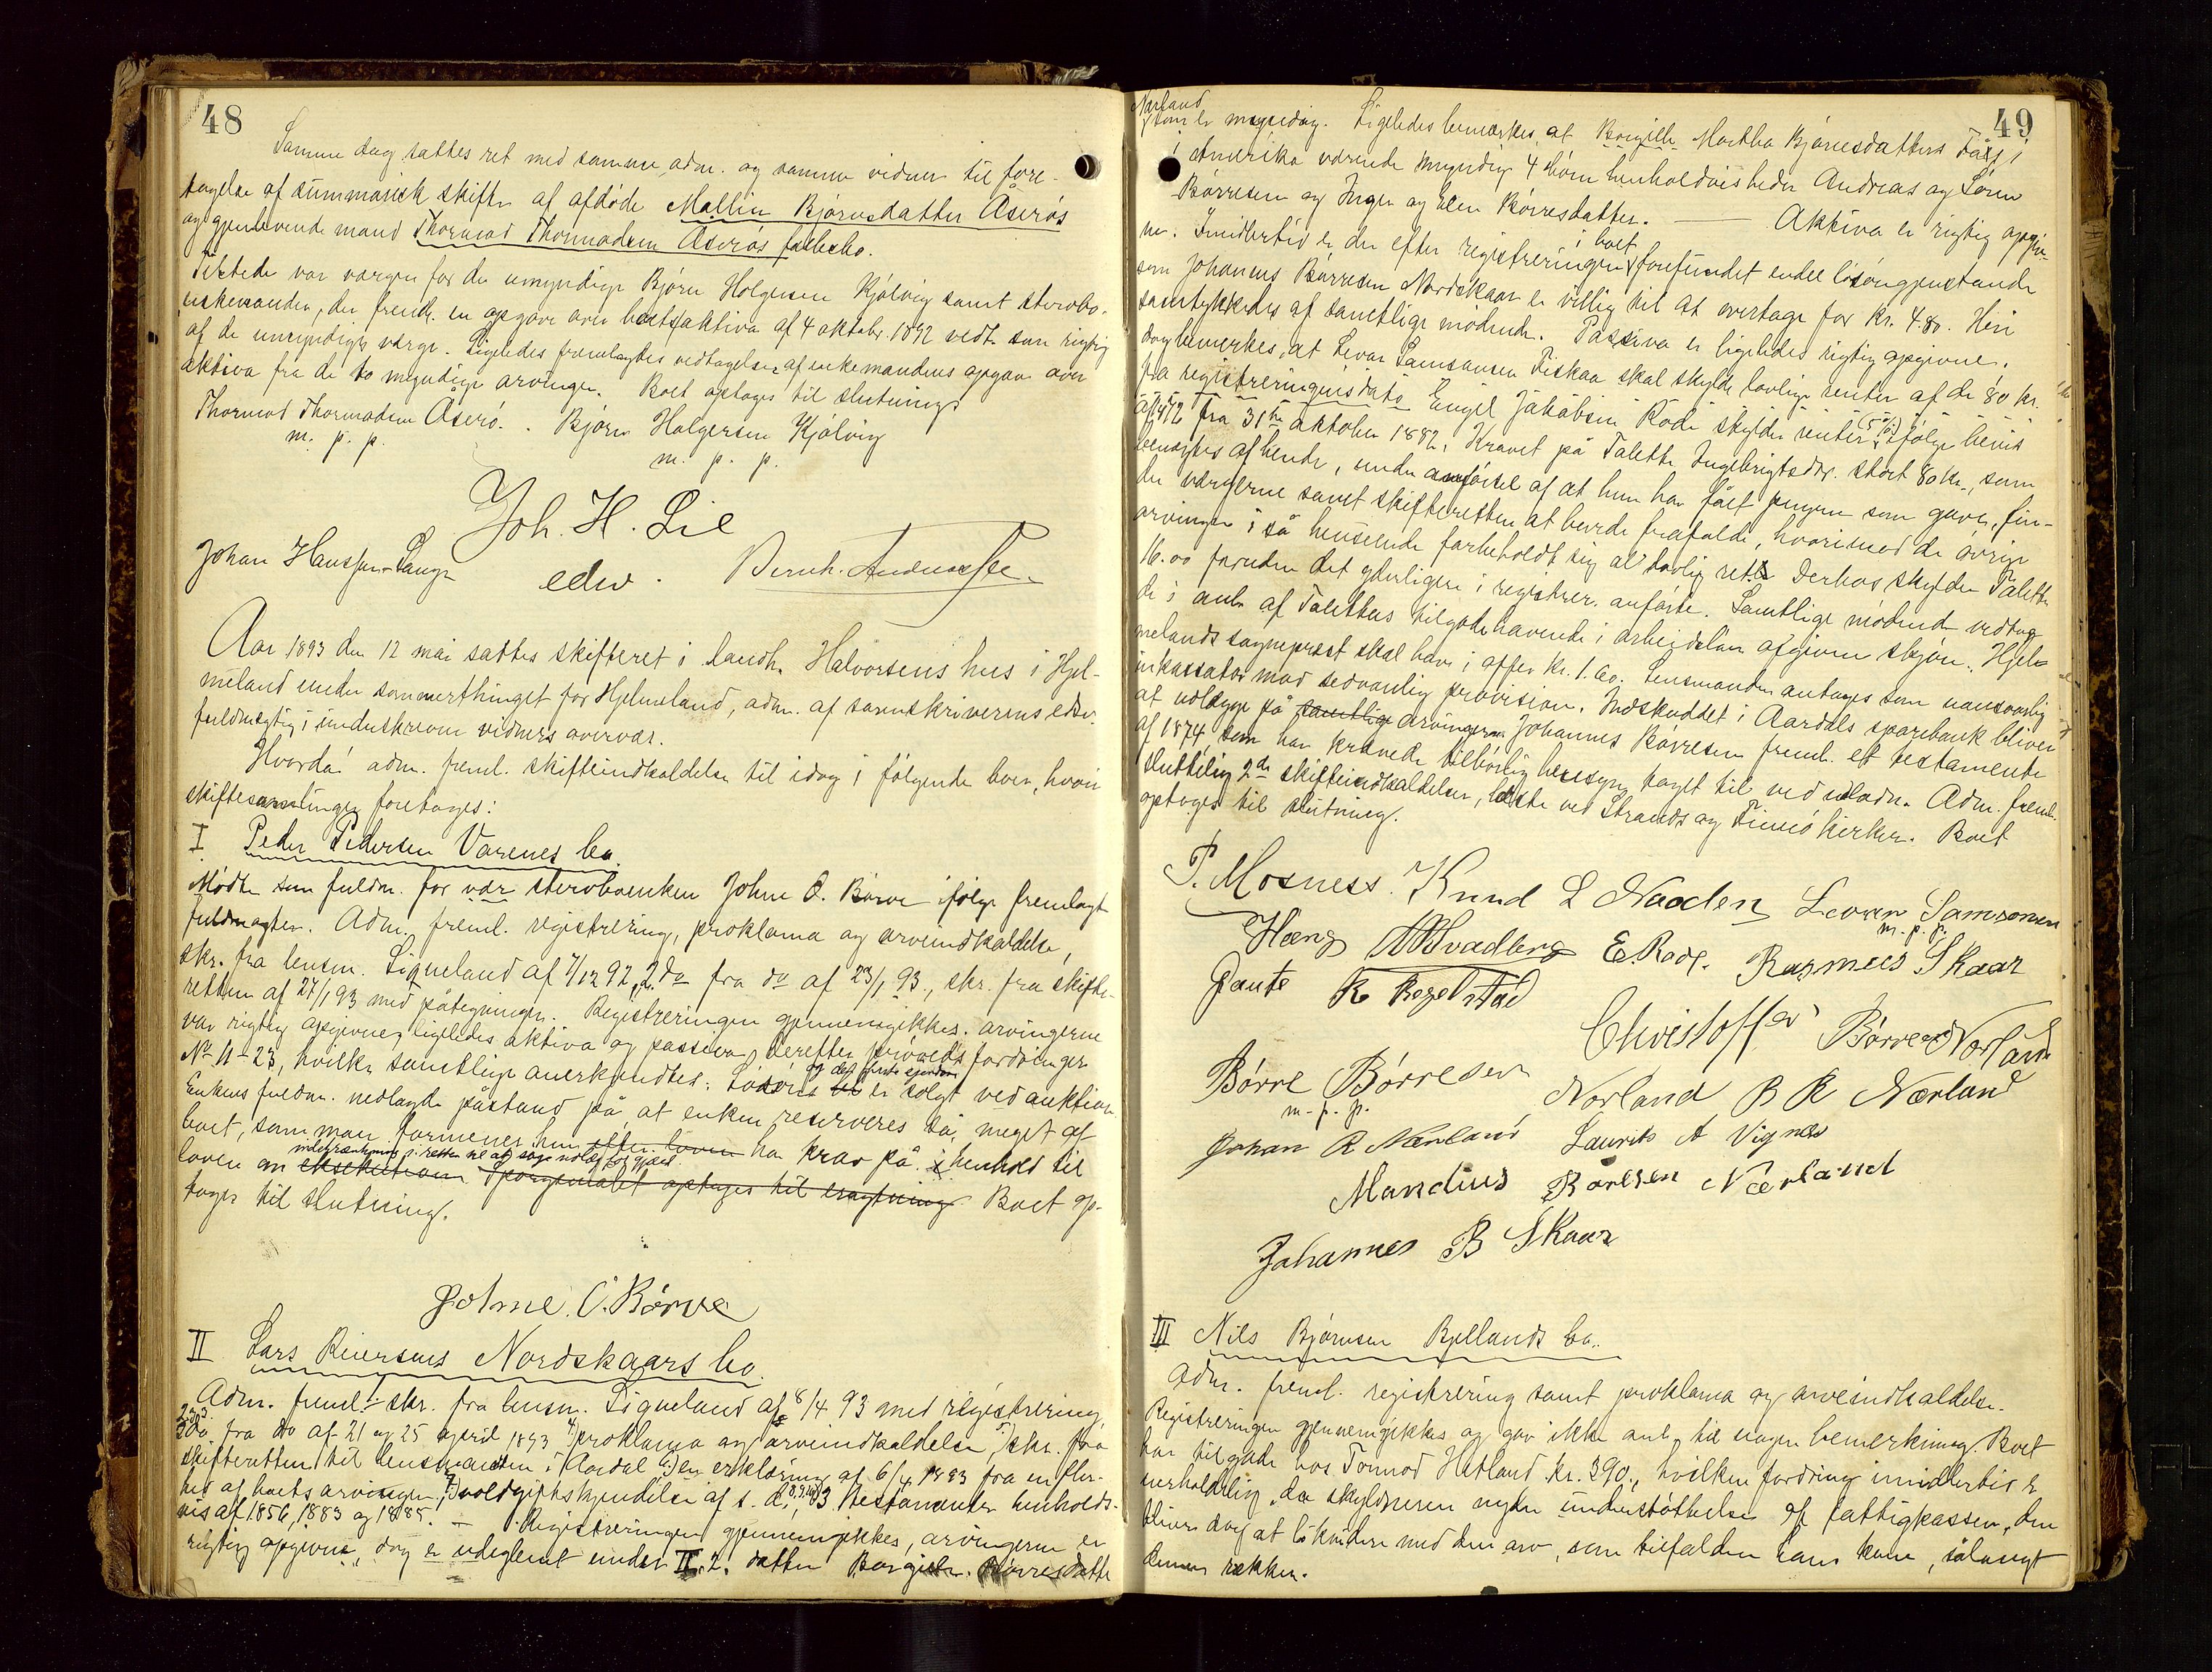 48
Samme dag sattes ret med samme adm. og samme vidner til fore-
tagelse af summarisk skifte af afdöde Mallin Björnsdatter Åserös
og gjenlevende mand Thormod Thormodsen Åserös fællesbo.
Tilstede var værgen for de umyndige Björn Holgersen Kjölvig samt stervbo-
enkemanden, der freml. en opgave over boets aktiva af 4 oktobr. 1892 vedt. som rigtig
af de umyndiges værge. Ligeledes fremlagdes vedtagelse af enkemandens opgave over
aktiva fra de to myndige arvinger. Boet optages til slutning.
Thormod Thormodsen Åserö. Björn Holgersen Kjölvig
m. p. p. m. p. p.
Joh. H. Lie
edsv.
Johan Hanssen-Lange Bernh. Andreassen
Aar 1893 den 12 mai sattes skifteret i landh. Halvorsens hus i Hjel-
meland under sommerthinget for Hjelmeland, adm. af sorenskriverens edsv.
fuldmægtig i underskrevne vidners overvær.
Hvorda! adm. freml. skifteindkaldelse til idag i fölgende boer, hvori
skiftesamlinger foretages:
I Peder Pedersen Varenes bo.
Mödte som fuldm. for vor stervboenken Johne O. Börve ifölge fremlagt
fuldmagter. Adm. freml. registrering, proklama og arveindkaldelse,
skr. fra lensm. Sigveland af 7/12 92, 2 do fra do af 23/1 93., skr. fra skifte-
retten af 27/1 93 med påtegninger. Registreringen gjennemgikkes. arvingerne
var rigtig opgivne, ligeledes aktiva og passiva, derefter prövedes fordringer
No 11-23, hvilke samtlige anerkjendtes. Lösöre og det faste eiendom er solgt ved auktion
Enkens fuldm. nedlagde påstand på, at enken reserveres så meget af
boet, som man formener hun efter loven har krav på i henhold til
loven om indskrænkning i retten til at söge udlæg for gjæld. eksekution Spörgsmålet optages til eragtning Boet op-
tages til slutning.
Johne O. Börve
II Lars Reiersens Nordskaars bo.
Adm. freml. 1 skr. fra lensm. Sigveland af 8/4 93 med registrering,
2 do fra do af 21 og 25 april 1893 4) proklama og arveindkaldelse, 5) skr. fra
skifteretten til lensmanden i Aardal 6) en erklæring af 6/4 1883 fra en fler-
hed af boets arvinger, 7) voldgiftskjendelse af s. d., 8,9,10) 3 testamenter henholds-
vis af 1856, 1883 og 1885. – Registreringen gjennemgikkes, arvingerne er
rigtig opgivne, dog er udeglemt under II. 2. datter Borgille Börresdatter
49
Nærland
som er myndig. Ligeledes bemærkes, at Borgille Martha Björnesdatters
i Amerika værende myndige 4 börn henholdsvis heder Andreas og Sören
Börresen og Inger og Elen Börresdatter. — Aktiva er rigtig opgiv-
ne. Imidlertid er der efter registreringen i boet forefundet endel lösöregjenstande
som Johannes Börresen Nordskaar er villig til at overtage for kr. 4.80. Heri
samtykkedes af samtlige mödende. Passiva er ligeledes rigtig opgivne,
dog bemærkes, at Levar Samsonsen Fiskaa skal skylde lovlige renter af de 80 kr.
fra registreringens dato Engel Jakobsen Rode skylder renter (5%) ifölge bevis
fra 31te oktober 1882, Kravet på Talette Ingebrigtsdtr. stort 80 kr., som
benægtes af hende, under anförsel af at hun har fået pengene som gave, fin-
der værgerne samt skifteretten at burde frafalde, hvorimod de övrige
arvinger i så henseende forbeholdt sig al lovlig ret. Derhos skylder Talette
16.00 foruden det yderligere i registrer. anförte. Samtlige mödende vedtog
de i anl. af Talettes tilgodehavende i arbeidslön afgivne skjön. Hjel-
melands sogneprest skal have i offer kr. 1.60. Lensmanden antages som uansvarlig
inkassator mod sedvanlig provision. Indskuddet i Aardals sparebank bliver
at udlægge på samtlige arvingerne Johannes Börresen freml. et testamente
af 1874, som han krævede tilbörlig hensyn taget til ved udlodn. Adm. freml.
sluttelig 2de skifteindkaldelser, læste ved Strands og Finnö kirker. Boet
optages til slutning.
T. Mosness. Knud L Naaden Levar Samsonsen
m. p. p.
E. Rode. Rasmus Skaar
Gaute
Christoffer Börresen Norland
Börre Börresen
m. p. p.
Norland B R Nærland
Johan R Nærland Laurits A Vignæs
Mandius Karlsen Nærland
Johannes B Skaar
III Nils Björnsen Bjellands bo.
Adm. freml. registrering samt proklama og arveindkaldelse.
Registreringen gjennemgikkes og gav ikke anl. til nogen bemerkning. Boet
har tilgode hos Tormod Hetland kr. 390., hvilken fordring imidlertid er
uerholdelig, da skyldneren nyder understöttelse af fattigkassen, den
bliver dog at likvidere med den arv, som tilfalder hans kone, sålangt
denne rækker.